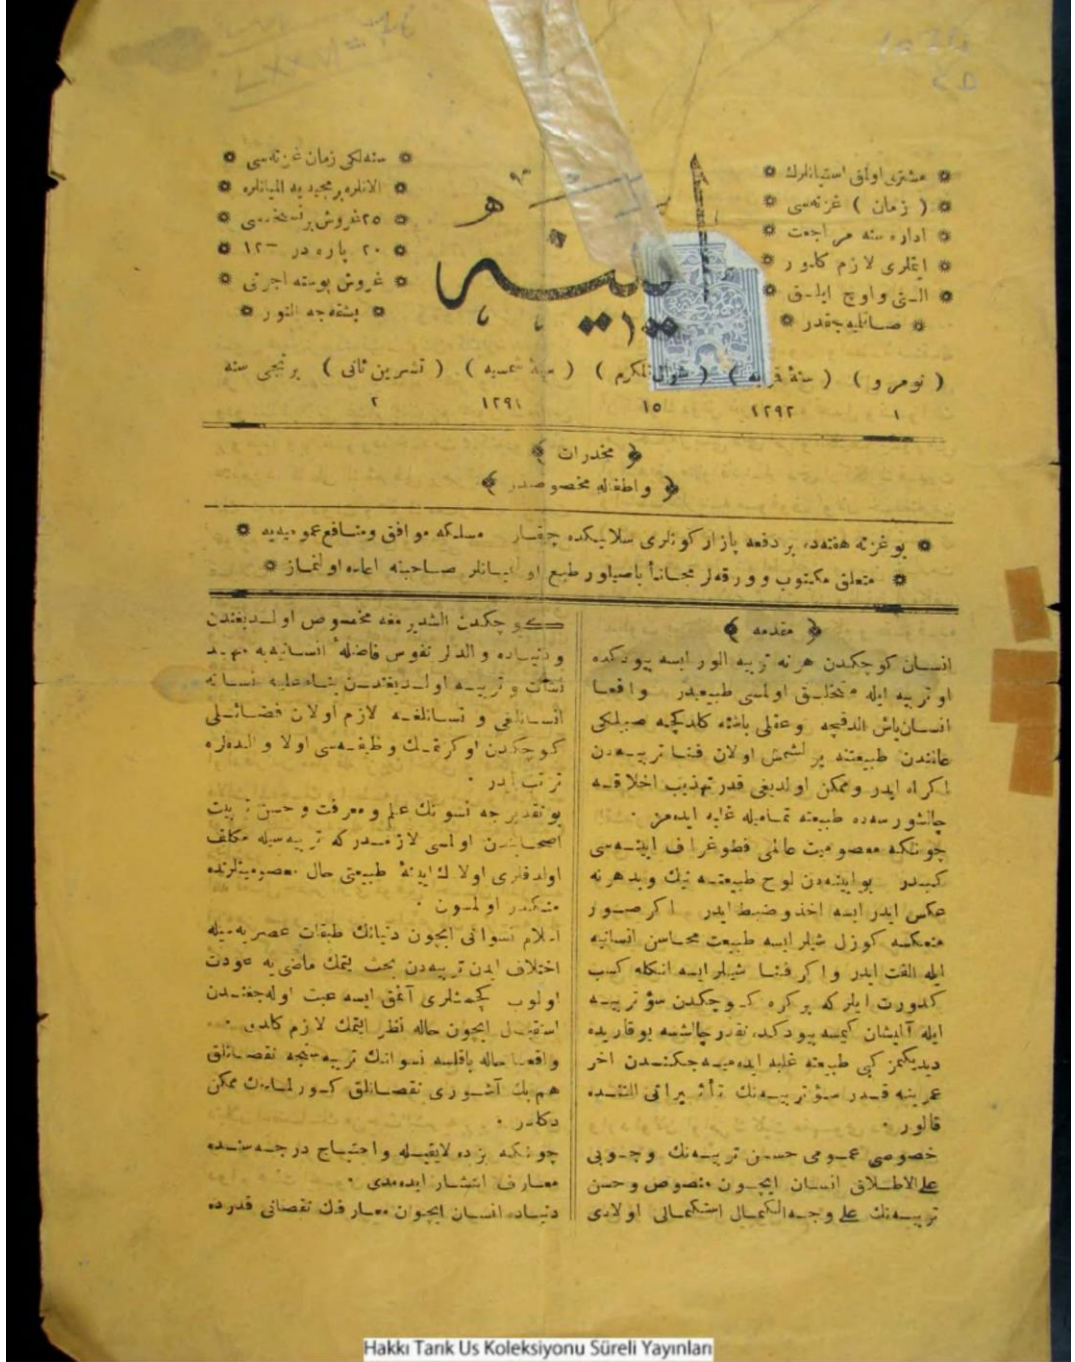 مشتری اولمق استیانلرك
( زمان ) غزته‌سی
اداره سنه مراجعت
ایتلری لازم كلور
التی واوچ ایلـق
صـاتلیه‌جقدر
سنه‌لكی زمان غزته‌سی
الانلره بر مجیدیه المیانلره
٢٥ غروش بر نسخه‌سی
٢٠ پاره در
غروش پوسته اجرتی
بشقه‌جه النور
آیینه
( نومرو ) ( سنهٔ قمریه ) ( شوال المكرم ) ( سنهٔ شمسیه ) ( تشرین ثانی ) برنجی سنه
١ ١٢٩٢ ١٥ ١٢٩١ ٢
﴿ مخدرات ﴾
﴿ واطفاله مخصوصدر ﴾
بو غزته هفته‌ده بر دفعه پازار كونلری سلانیكده چیقار مسلكه موافق ومنافع عمومیه‌یه
متعلق مكتوب وورقه‌لر مجاناً باصیلور طبع اولمیانلر صاحبنه اعاده اولنماز
﴿ مقدمه ﴾
انسـان كوچكدن هر نه تربیه الور ایسه بیودكده
او تربیه ایله متخلـق اولمسی طبیعیدر واقعـا
انسان یاش الدقچه وعقلی باشنه كلدكجه صبیلكی
عالمندن طبیعتنه یرلشمش اولان فنـا تربیـه‌دن
اكراه ایدر وممكن اولدیغی قدر تهذیب اخلاقـه
چالشور سه‌ده طبیعته تمـامیله غلبه ایده‌مز ٠
چونكه معصومیت عالمی فطوغراف آیینـه‌سی
كبیدر بو آیینه‌دن لوح طبیعتـه نیك وبد هر نه
عكس ایدر ایسه اخذ وضبط ایدر اكر صـور
منعكسه كوزل شیلر ایسه طبیعت محـاسن انسانیه
ایله الفت ایدر واكر فنـا شیلر ایسه انكله كسب
كدورت ایلر كه بر كره كـوچكدن سؤ تربیـه
ایله آلیشان كیمسه بیودكده نقدر چالشسه یوقاریده
دیدیكمز كبی طبیعته غلبه ایده‌میـه‌جكنـدن اخر
عمرینه قـدر سؤ تربیـه‌نك تأثیراتی التنـده
قالور ٠
خصوصی عمـومی حسـن تربیـه‌نك وجـوبی
علی‌الاطـلاق انسـان ایچـون منصوص وحسن
تربیـه‌نك علی وجـه‌الكمـال استكمـالی اولادی
كـوچكدن الشدیرمغه مخصوص اولـدیغندن
ودنیـاده والدلر نفوس فاضلهٔ انسـانیه‌یه مهـد
نشأت وتربیـه اولـدیغنـدن بنـاءً علیه انسـانه
انسـانلغی وانسـانلغـه لازم اولان فضـائـلی
كـوچكدن اوكرتمـك وظیفـه‌سی اولا والـده‌لره
ترتب ایدر ٠
بو تقدیرجه نسوانك علم ومعرفت وحسن تربیت
اصحابنـدن اولمسی لازمـدر كه تربیه‌سیله مكلف
اولدقلری اولادك آیینهٔ طبیعتی حال معصومیتلرنده
متكدر اولمسون ٠
اسلام نسوانی ایچون دنیانك طبقات عصریه‌سیله
اختلاف ایدن تربیه‌دن بحث ایتمك ماضی‌یه عودت
اولوب كچمشلری آنمق ایسه عبث اوله‌جغنـدن
استقبـال ایچون حاله نظر ایتمك لازم كلدی ٠
واقعـا حاله باقلسه نسوانك تربیـه‌سنجه نقصـانلق
هم پك آشـوری نقصـانلق كـورلمامك ممكن
دكلدر ٠
چونكـه بزده لایقیـله واحتیـاج درجـه‌سنـده
معـارف انتشـار ایده‌مدی ٠
دنیـاده انسـان ایچـون معـارفك نقصانی قدرده
Hakkı Tarık Us Koleksiyonu Süreli Yayınları